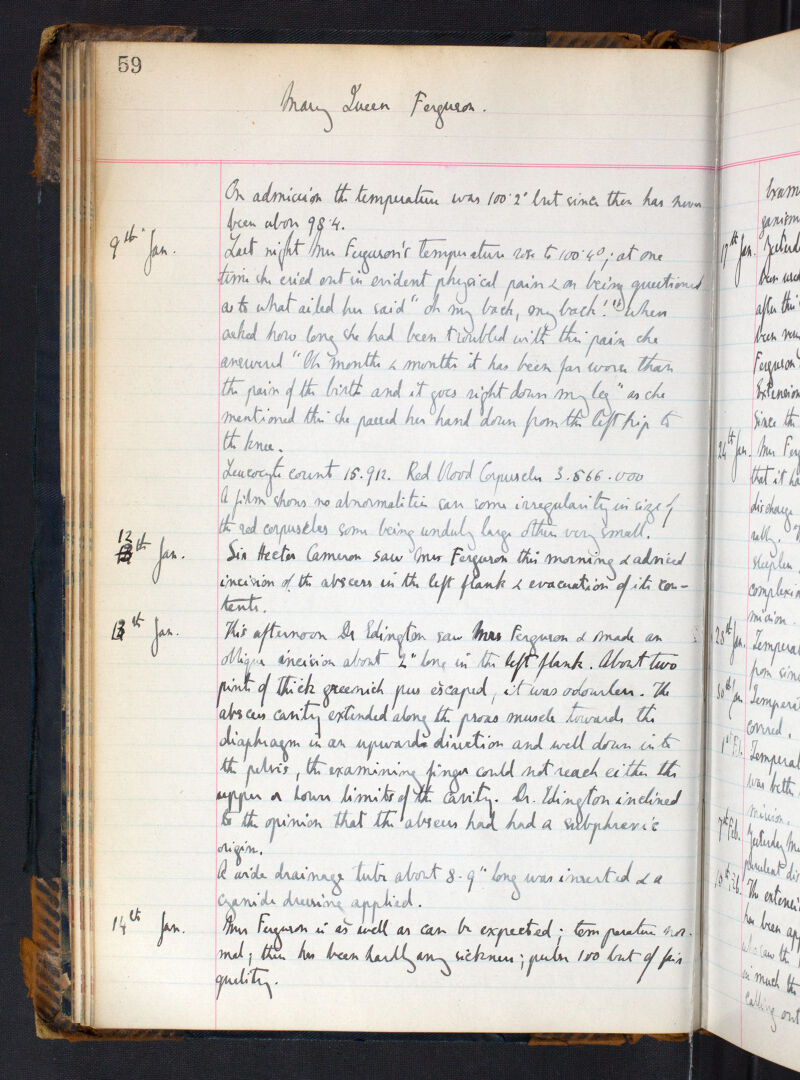 59
Mary Queen Ferguson.
On admission the temperature was 100·2° but since then has never
been above 98·4.
9th Jan. Last night Mrs Ferguson's temperature rose to 100·4°; at one
time she cried out in evident physical pain & on being questioned
as to what ailed her said "oh my back, my back!" When
asked how long she had been troubled with this pain she
answered "Oh months & months it has been far worse than
the pain of the birth and it goes right down my leg" as she
mentioned this she passed her hand down from the left hip to
the knee.
Leucocyte count 15.912. Red blood Corpuscles 3.566.000
A film shows no abnormalities save some irregularity in size of
the red corpuscles some being unduly large others very small.
12th Jan. Sir Hector Cameron saw Mrs Ferguson this morning & advised
incision of the abscess in the left flank & evacuation of its con-
tents.
13th Jan. This afternoon Dr Edington saw Mrs Ferguson & made an
oblique incision about 2" long in the left flank. About two
pints of thick greenish pus escaped, it was odourless. The
abscess cavity extended along the psoas muscle towards the
diaphragm in an upwards direction and well down into
the pelvis, the examining finger could not reach either the
upper or lower limits of the cavity. Dr. Edington inclined
to the opinion that the abscess had had a subphrenic
origin.
A wide drainage tube about 8-9" long was inserted & a
cyanide dressing applied.
14th Jan. Mrs Ferguson is as well as can be expected; temperature nor-
mal; there has been hardly any sickness; pulse 100 but of fair
quality.
17th Jan.
been
after this
been
Ferguson
Extension
since the
24th Jan. Mrs Ferg
that it ha
discharge
28th Jan. Temperat
30th Jan Temperat
1st Feb. Temperat
was
7th Feb. Yesterday Mr
10th Feb. The extensi
has been app
saw the
in much the
calling out